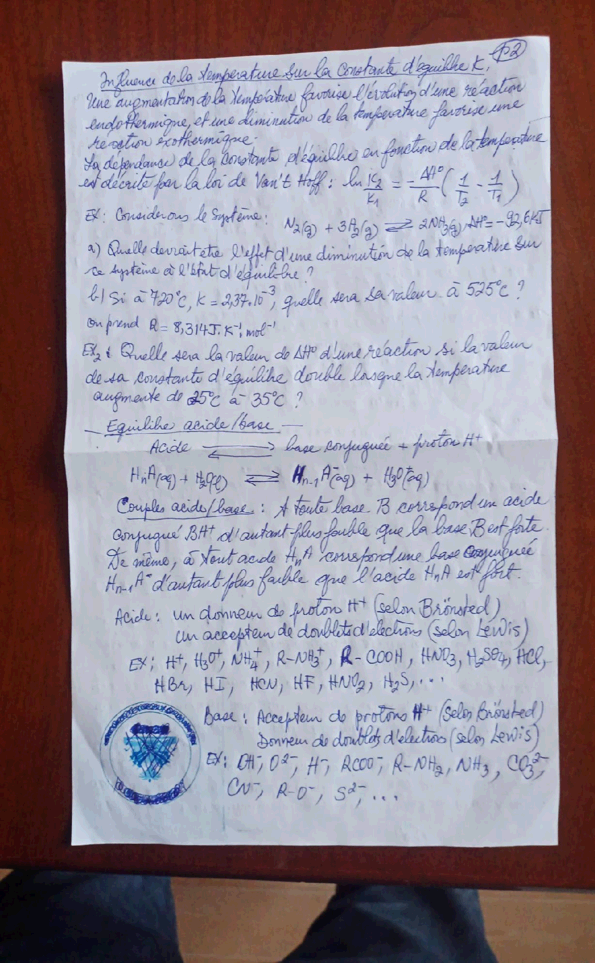 P2
Influence de la température sur la constante d'équilibre K.
Une augmentation de la température favorise l'évolution d'une réaction
endothermique, et une diminution de la température favorise une
réaction exothermique.
La dépendance de la constante d'équilibre en fonction de la température
est décrite par la loi de Van't Hoff : ln K2/K1 = -ΔH°/R (1/T2 - 1/T1)
Ex: Considérons le système :
N2(g) + 3H2(g) ⇌ 2NH3(g), ΔH° = -92,6 kJ
a) Quelle devrait être l'effet d'une diminution de la température sur
ce système à l'état d'équilibre ?
b) Si à 720°C, K = 2,37.10⁻³, quelle sera sa valeur à 525°C ?
on prend R = 8,314 J.K⁻¹.mol⁻¹
Ex2 : Quelle sera la valeur de ΔH° d'une réaction si la valeur
de sa constante d'équilibre double lorsque la température
augmente de 25°C à 35°C ?
Equilibre acide/base
Acide ⇌ base conjuguée + proton H⁺
HnA(aq) + H2O(l) ⇌ Hn-1A⁻(aq) + H3O⁺(aq)
Couples acide/base : A toute base B correspond un acide
conjugué BH⁺ d'autant plus faible que la base B est forte.
De même, à tout acide HnA correspond une base conjuguée
Hn-1A⁻ d'autant plus faible que l'acide HnA est fort.
Acide : un donneur de proton H⁺ (selon Brönsted)
un accepteur de doublets d'electrons (selon Lewis)
Ex : H⁺, H3O⁺, NH4⁺, R-NH3⁺, R-COOH, HNO3, H2SO4, HCl,
HBr, HI, HCN, HF, HNO2, H2S, ...
Base : Accepteur de protons H⁺ (selon Brönsted)
Donneur de doublets d'électrons (selon Lewis)
Ex : OH⁻, O²⁻, H⁻, RCOO⁻, R-NH2, NH3, CO3²⁻,
CN⁻, R-O⁻, S²⁻, ...